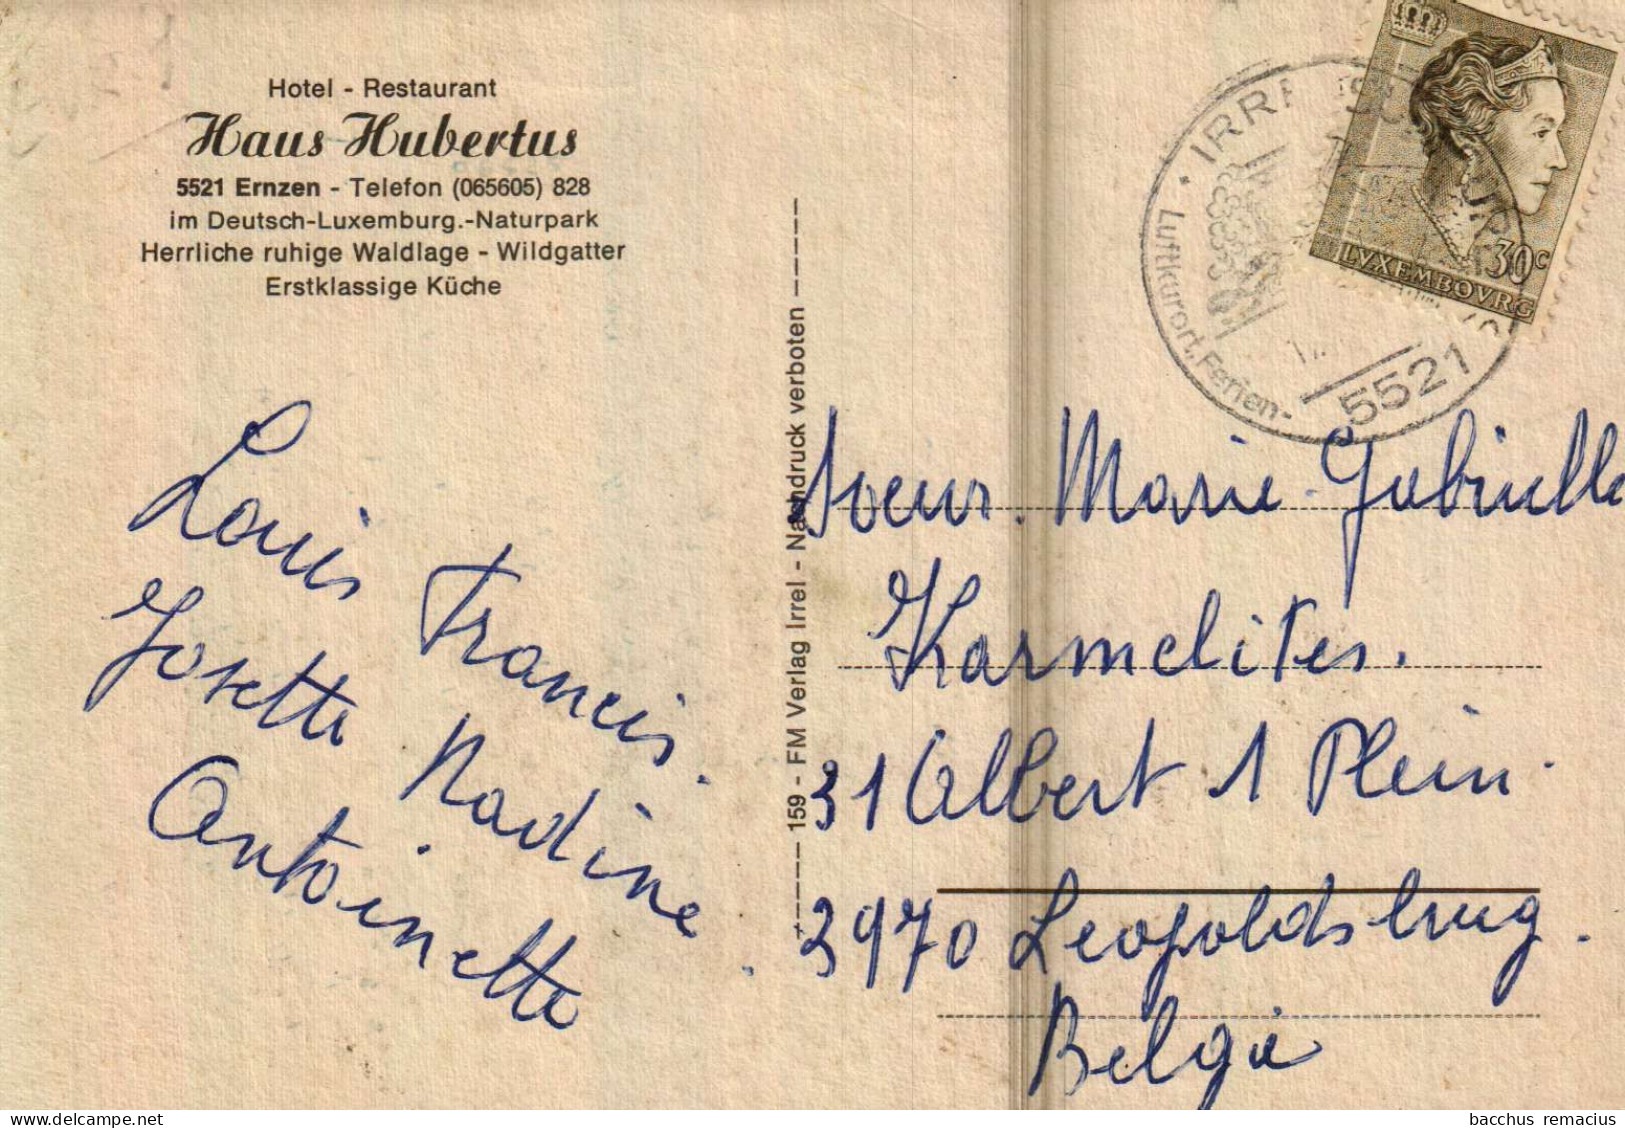 Hotel - Restaurant
Haus Hubertus
5521 Ernzen - Telefon (065605) 828
im Deutsch-Luxemburg.-Naturpark
Herrliche ruhige Waldlage - Wildgatter
Erstklassige Küche
Louis Francis.
Josette Nadine
Antoinette.
159 - FM Verlag Irrel - Nachdruck verboten
LVXEMBOVRG
30c
Luftkurort, Ferien-
5521
Soeur. Marie-Gabrielle
Karmelites.
31 Albert 1 Plein.
3970 Leopoldsburg.
Belgie
bacchus remacius
delcampe.net